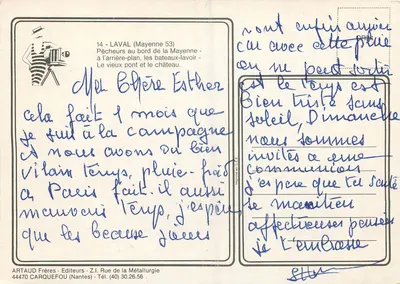 14 - LAVAL (Mayenne 53)
Pêcheurs au bord de la Mayenne -
à l'arrière-plan, les bateaux-lavoir -
Le vieux pont et le château.
Ma Chère Esther
cela fait 1 mois que
je suit à la campagne
et nous avons du bien
vilain temps, pluie-froid
a Paris fait-il aussi
mauvais temps, j'espère
que les beause jours
vont enfin
car avec cette pluie
on ne peut sortir
est le temps est
bien triste sans
soleil, Dimanche
nous sommes
invités a une
communion
j'espère que ta santé
se maintien
affectueuses pensées
je t'embrasse
ARTAUD Frères - Editeurs - Z.I. Rue de la Métallurgie
44470 CARQUEFOU (Nantes) - Tél. (40) 30.26.56